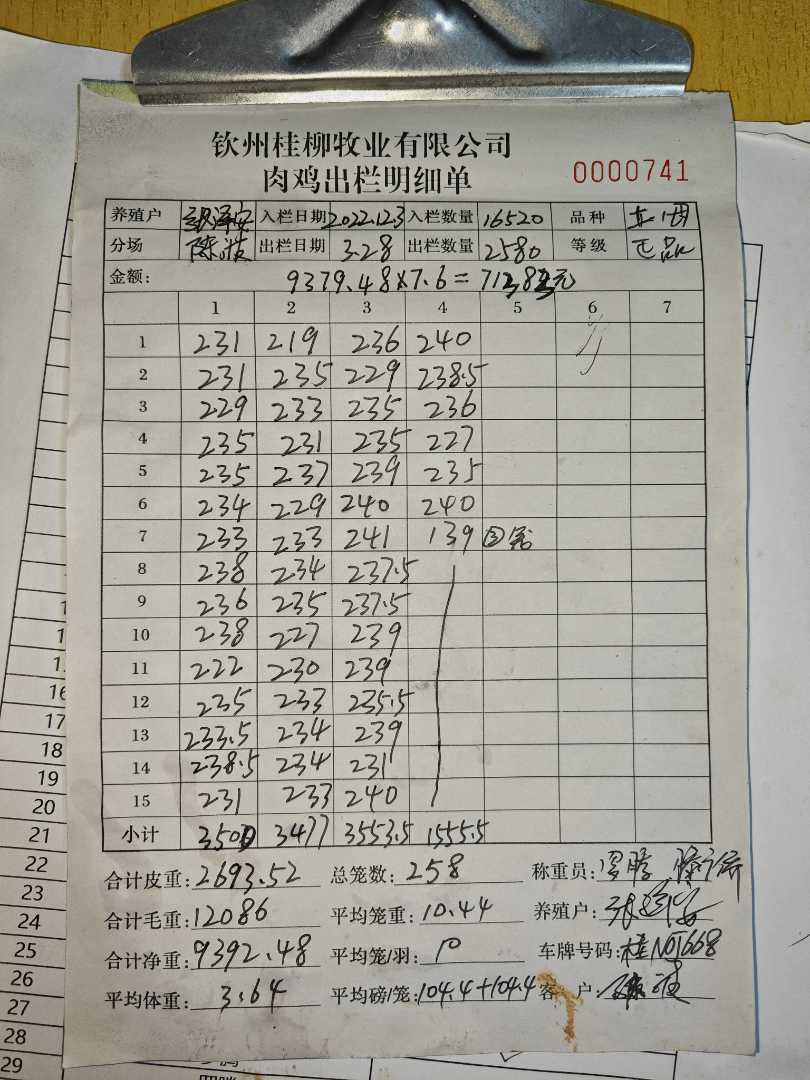 钦州桂柳牧业有限公司
肉鸡出栏明细单 0000741
养殖户 入栏日期 2022.12.3 入栏数量 16520 品种
分场 陈波 出栏日期 3.28 出栏数量 2580 等级 正品
金额: 9379.48×7.6=
1 2 3 4 5 6 7
1 231 219 236 240
2 231 235 229 238.5
3 229 233 235 236
4 235 231 235 227
5 235 237 239 235
6 234 229 240 240
7 233 233 241 139
8 238 234 237.5
9 236 235 237.5
10 238 227 239
11 222 230 239
12 235 233 235.5
13 233.5 234 239
14 238.5 234 231
15 231 233 240
小计 3500 3477 3553.5 1555.5
合计皮重: 2693.52 总笼数: 258 称重员:
合计毛重: 12086 平均笼重: 10.44 养殖户:
合计净重: 9392.48 平均笼/羽: 10 车牌号码:
平均体重: 3.64 平均磅/笼: 104.4+104.4 客户:
16
17
18
19
20
21
22
23
24
25
26
27
28
29